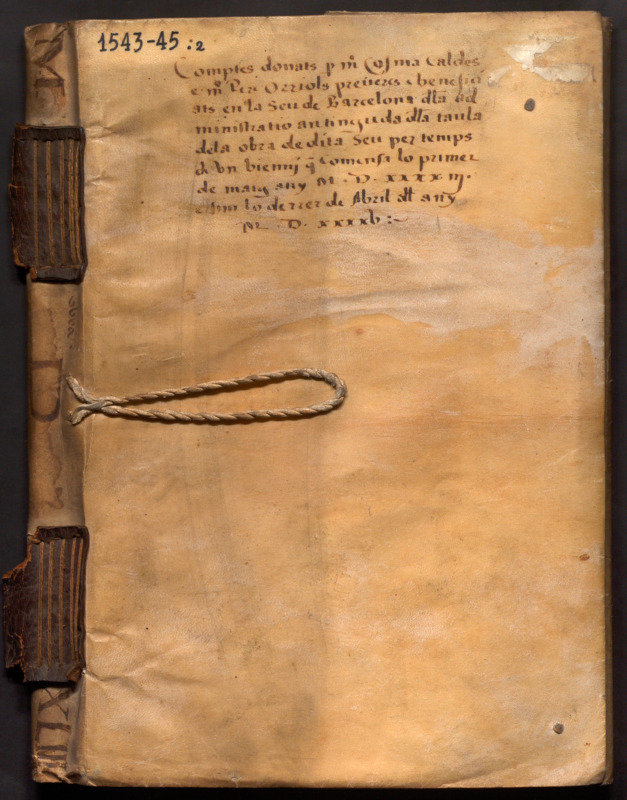 1543-45 :2
Comptes donats p mº Cosma Caldes
e mº Per Orriols preueres e benefici
ats en la Seu de Barcelona dla ad
ministratio an tinguda dla taula
dela obra de dita Seu per temps
de vn bienni q̃ comensa lo primer
de maig any M . D . xxxx iij .
e fini lo derrer de Abril dłł any
M . D . xxxxb :~
obra
D
M
XLIII